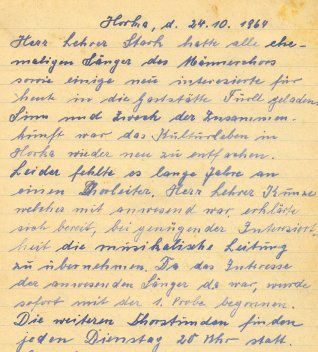 Horka, d. 24.10. 1964
Herr Lehrer Stark hatte alle ehe-
maligen Sänger des Männerchors
sowie einige neu interesierte für
heute in die Gaststätte Türll geladen.
Sinn und Zweck der Zusammen-
kunft war das Kulturleben in
Horka wieder neu zu entfachen.
Leider fehlte es lange Jahre an
einen Chorleiter. Herr Lehrer Kunze
welcher mit anwesend war, erklärte
sich bereit, bei genügender Interesiert-
heit die musikalische Leitung
zu übernehmen. Da das Interesse
der anwesenden Sänger da war, wurde
sofort mit der 1. Probe begonnen.
Die weiteren Chorstunden finden
jeden Dienstag 20 Uhr statt.